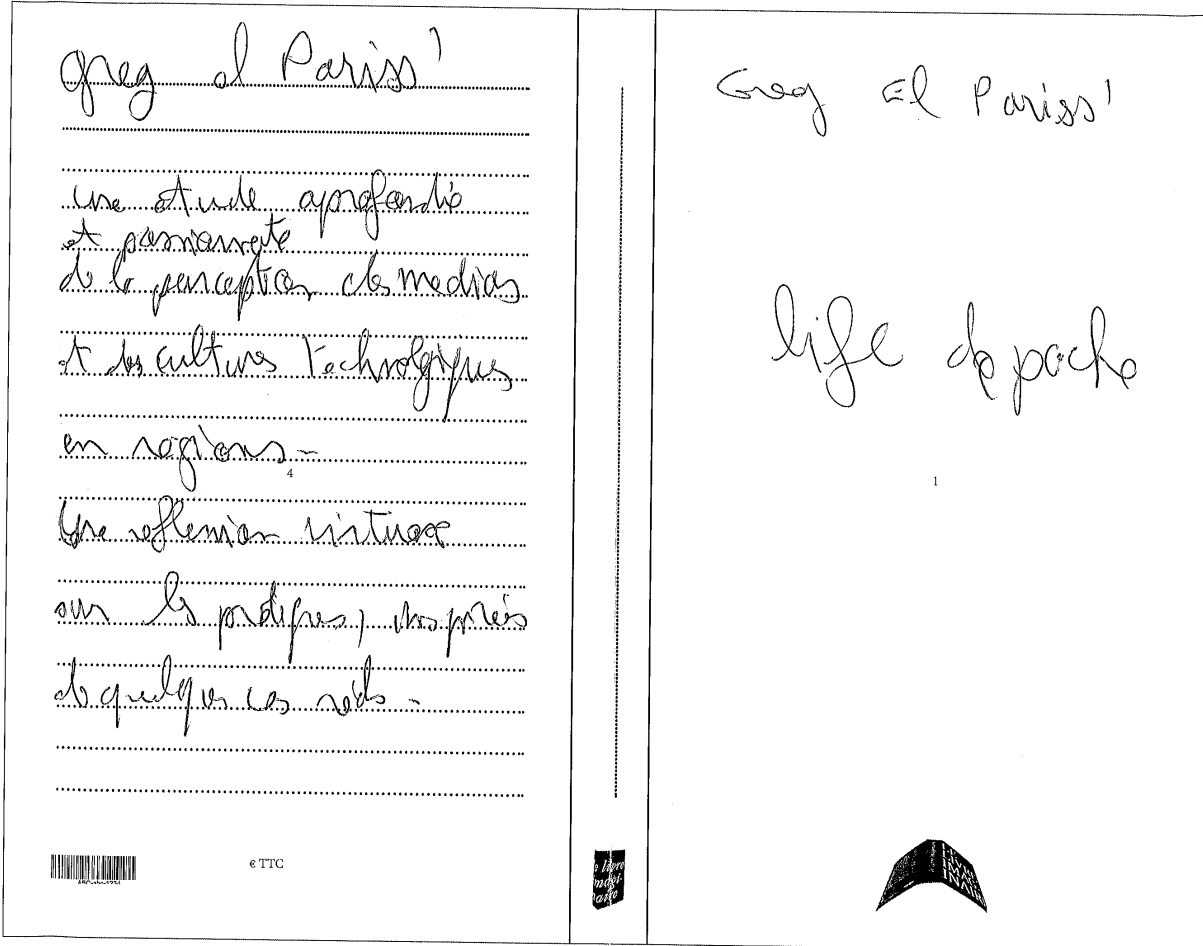 Greg el Pariss'
une etude aprofondie
et passionnante
de la perception des medias
et des cultures technologiques
en regions -
4
Une reflexion virtuose
sur les prodiges, inspirés
de quelques cas réels -
€ TTC
Greg El Pariss'
life de poche
1